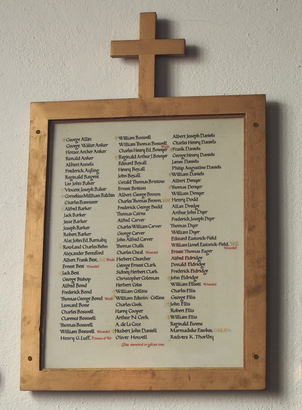 George Allin
George Walter Anker
Horace Archer Anker
Ronald Anker
Albert Annels
Frederick Ayling
Reginald Baigent
Leo John Baker
Vincent Joseph Baker
Cornelius
Charles Bannister
Alfred Barker
Jack Barker
Jesse Barker
Joseph Barker
Robert Barker
Alexander Beresford
Albert Frank Best
Ernest Best Wounded
Jack Best
George Bishop
Alfred Bond
Frederick Bond
Thomas George Bond
Leonard Bone
Charles Boswell
Clarence Boswell
Thomas Boswell
William Boswell Wounded
Henry G. Luff
William Boswell
William Thomas Boswell
Charles Henry Ed. Bowyer
Reginald Arthur J. Bowyer
Edward Boyall
Henry Boyall
John Boyall
Gerald Thomas Brixton
Ernest Britton
Albert George Brown
Charles Thomas Brown
Frederick George Budd
Thomas Cairns
Alfred Carver
Charles William Carver
George Carver
John Alfred Carver
Thomas Chalk
Charles Cheal Wounded
Herbert Churcher
George Ernest Clark
Sidney Herbert Clark
Christopher Coleman
Herbert Cole
William Collins
William Edwin Collins
Charles Cook
Harry Cooper
Arthur N. Cork
A. de la Cour
Hubert John Daniell
Oliver Howell
Albert Joseph Daniels
Charles Henry Daniels
Frank Daniels
George Henry Daniels
James Daniels
Philip Augustine Daniels
William Daniels
Albert Denyer
Thomas Denyer
William Denyer
Henry Dodd
Allan Dredge
Arthur John Dyer
Frederick Joseph Dyer
Thomas Dyer
William Dyer
Edward Eastwick-Field
William Lovell Eastwick-Field
Ernest Thomas Eager
Alfred Eldridge
Donald Eldridge
Frederick Eldridge
John Eldridge
William Elliott Wounded
Charles Ellis
George Ellis
John Ellis
Robert Ellis
William Ellis
Reginald Evans
Redvers K. Thorlby